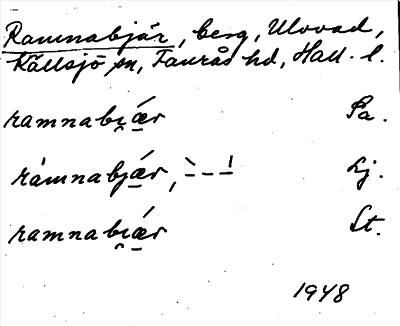 Ramnabjär, berg, Ulvvad,
Källsjö sn, Faurås hd, Hall. l.
ramnabi̯ǽr Pa.
ràmnabjǽr, `– – –́ Lj.
ramnabi̯ǽr St.
1948